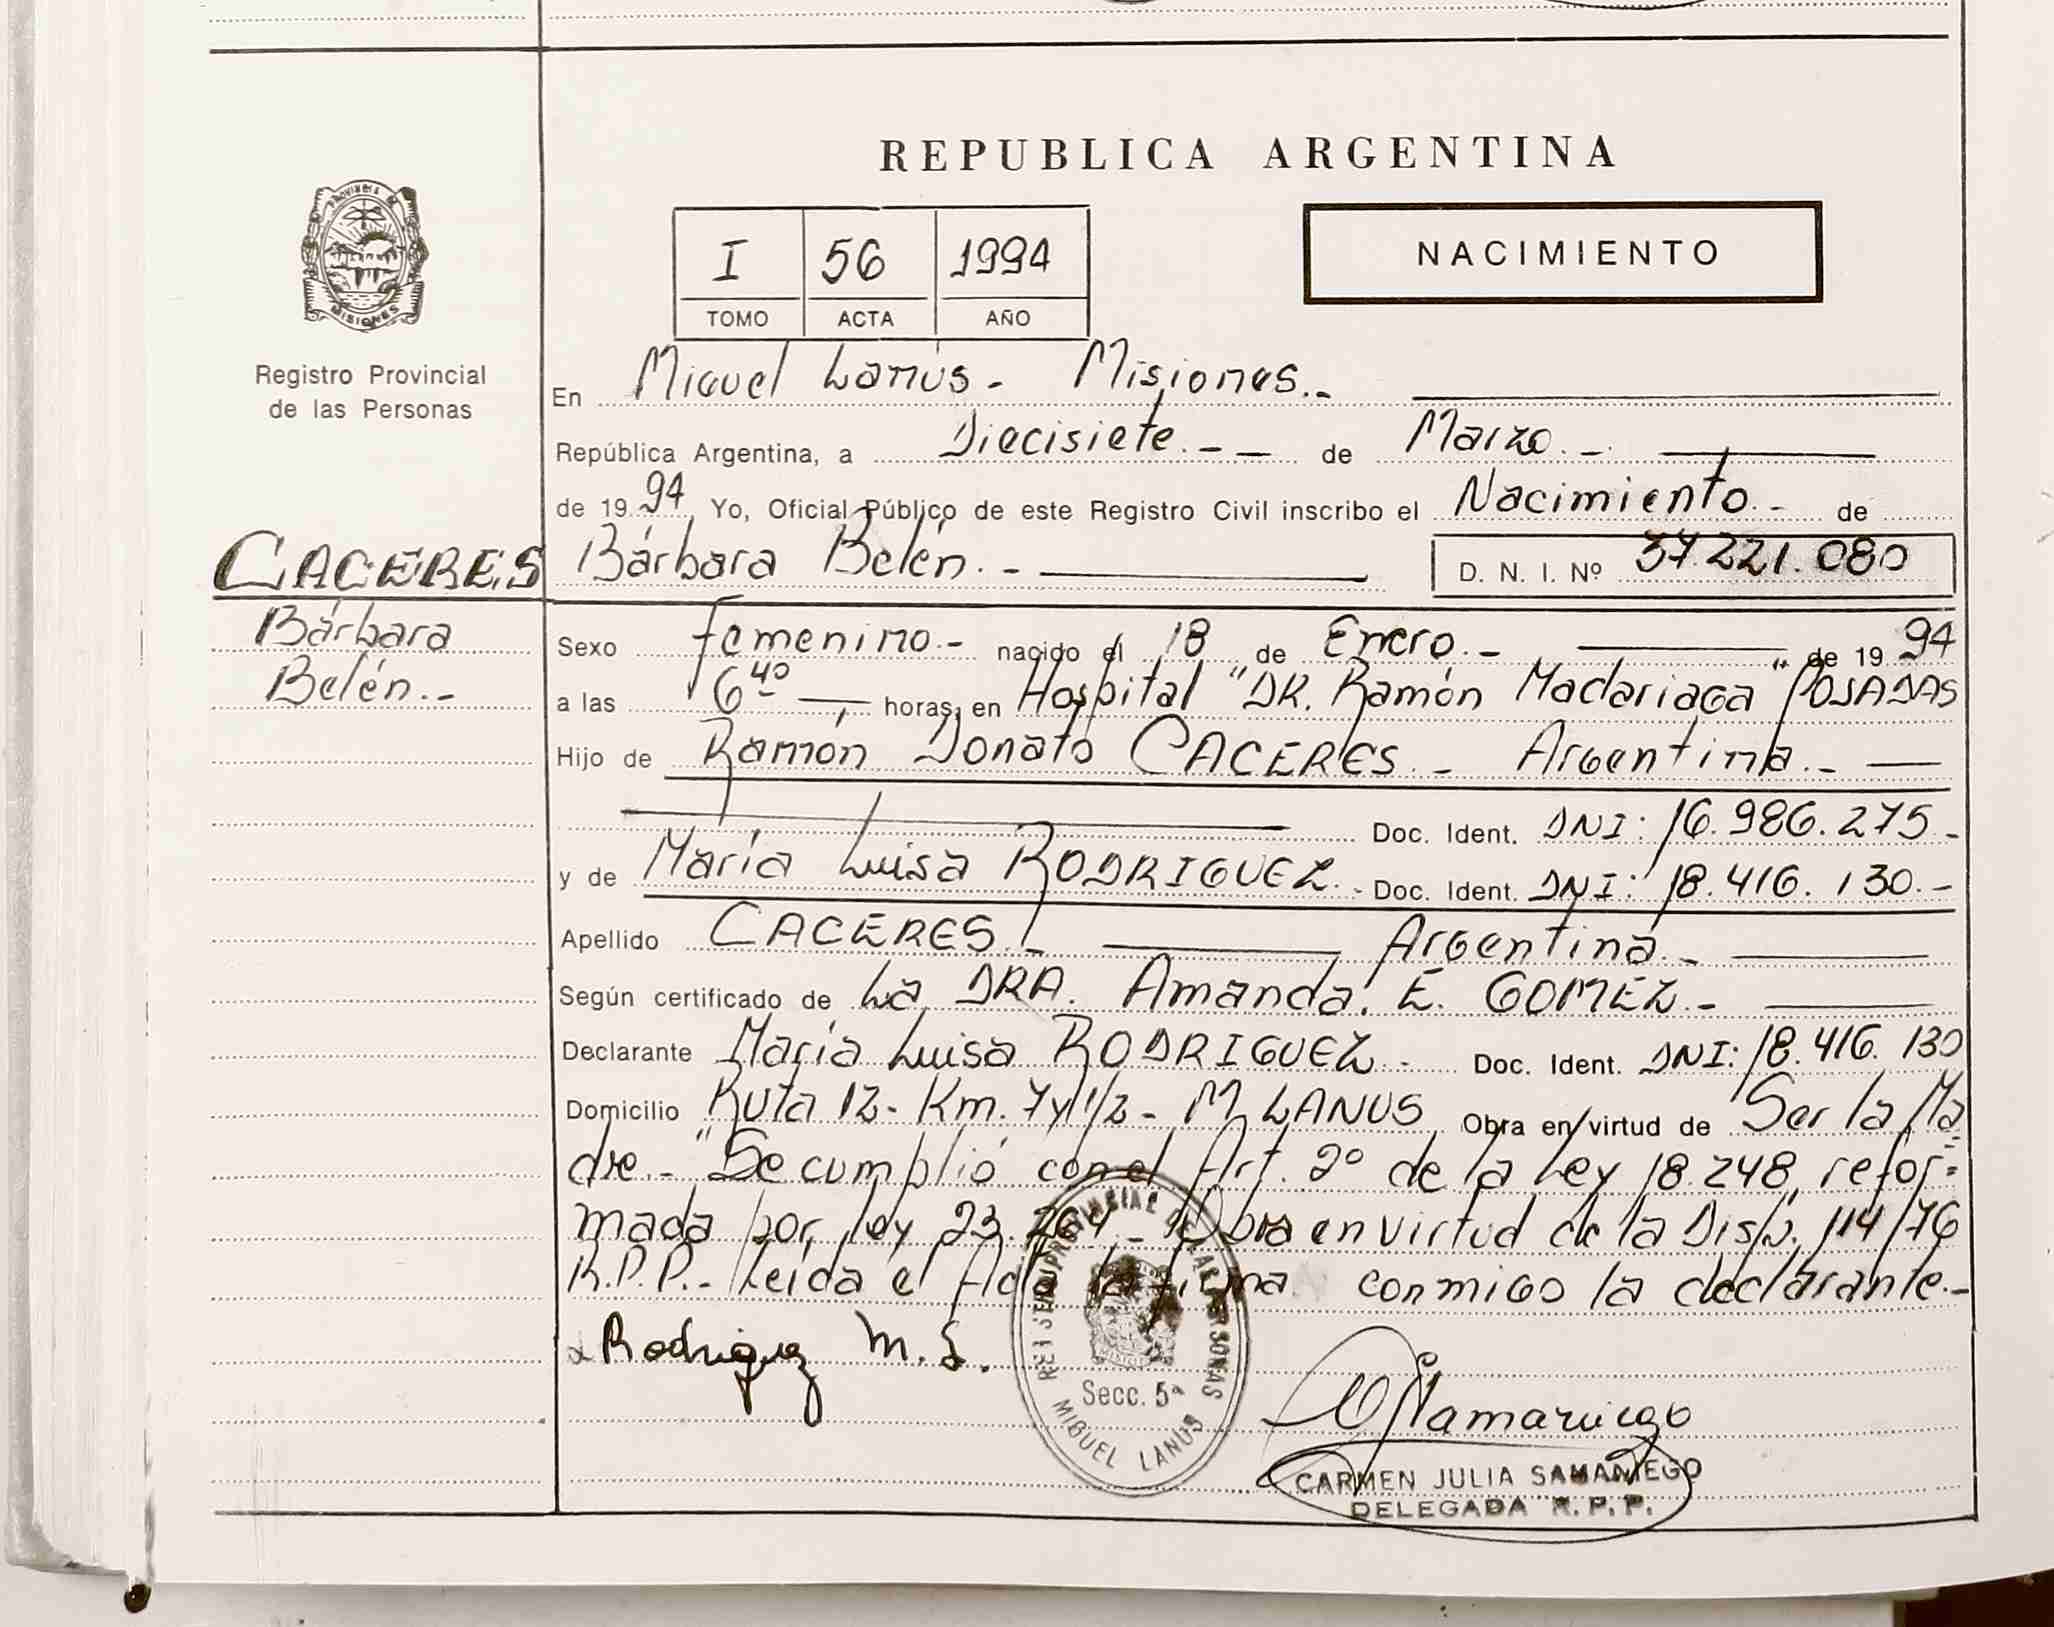 REPUBLICA ARGENTINA
PROVINCIA DE
MISIONES
Registro Provincial
de las Personas
I 56 1994
TOMO ACTA AÑO
NACIMIENTO
En Miguel Lanús.- Misiones.-
República Argentina, a Diecisiete.- - de Marzo.-
de 1994 Yo, Oficial Público de este Registro Civil inscribo el Nacimiento.- de
CACERES Bárbara Belén.- D. N. I. Nº 37.221.080
Bárbara
Belén.-
Sexo femenino.- nacido el 18 de Enero.- de 1994
a las 6 40 horas, en Hospital "DR. Ramón Madariaga" POSADAS
Hijo de Ramón Donato CACERES.- Argentina.-
Doc. Ident. DNI: 16.986.275.-
y de María Luisa RODRIGUEZ.- Doc. Ident. DNI: 18.416.130.-
Apellido CACERES.- Argentina.-
Según certificado de La DRA. Amanda E. GOMEZ.-
Declarante María Luisa RODRIGUEZ.- Doc. Ident. DNI: 18.416.130
Domicilio Ruta 12- Km. 7 y 1/2- M. LANUS Obra en virtud de Ser la Ma=
dre.- Se cumplió con el Art. 2º de la Ley 18.248, refor=
mada por ley 23.264.- Obra en virtud de la Disp. 114/76
R.P.P.- Leída el Acta la firma conmigo la declarante.-
Rodriguez M. L.
REGISTRO PROVINCIAL DE LAS PERSONAS
Secc. 5ª
MIGUEL LANUS
CJSamaniego
CARMEN JULIA SAMANIEGO
DELEGADA R.P.P.